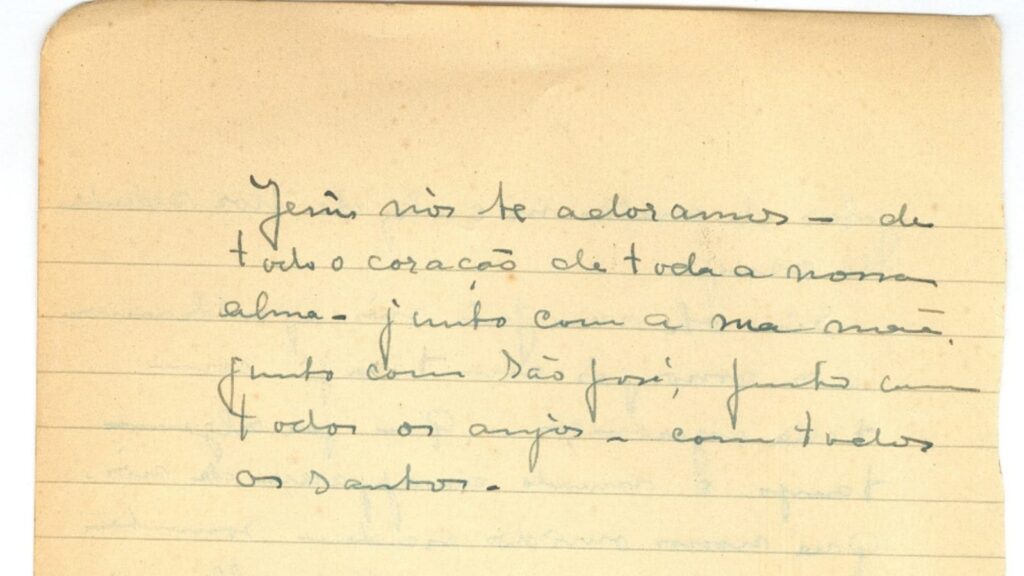 Jesûs nós te adoramos – de
todo o coração de toda a nossa
alma – junto com a sua mãe,
junto com São José, junto com
todos os anjos – com todos
os santos –